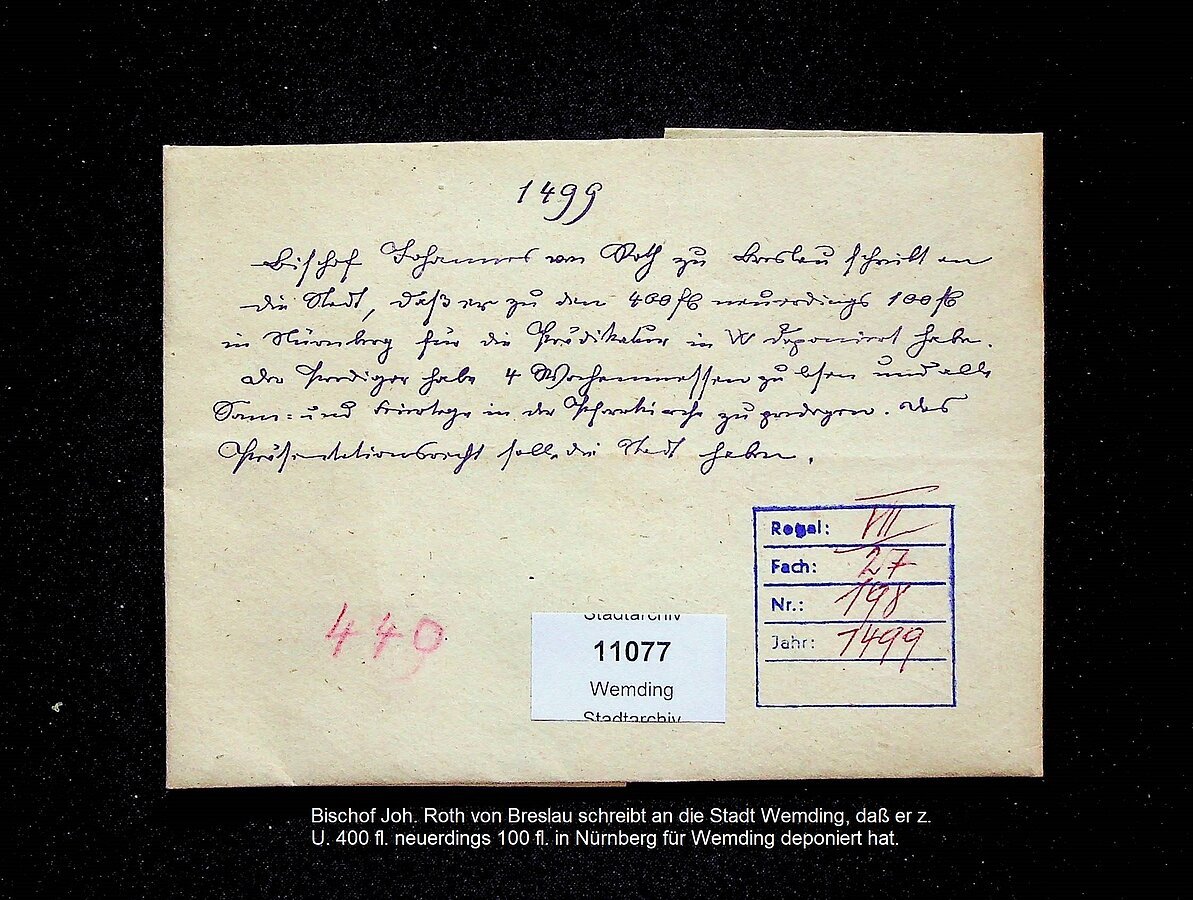 1499
Bischof Johannes von Roth zu Breslau schreibt an
die Stadt, daß er zu den 400 fl neuerdings 100 fl
in Nürnberg für die Prädikatur in W deponiert habe.
Der Prediger habe 4 Wochenmessen zu lesen und alle
Sonn= und Feiertage in der Pfarrkirche zu predigen. Das
Präsentationsrecht solle die Stadt haben.
Regal: VII
Fach: 27
Nr.: 198
Jahr: 1499
440
Stadtarchiv
11077
Wemding
Stadtarchiv
Bischof Joh. Roth von Breslau schreibt an die Stadt Wemding, daß er z.
U. 400 fl. neuerdings 100 fl. in Nürnberg für Wemding deponiert hat.